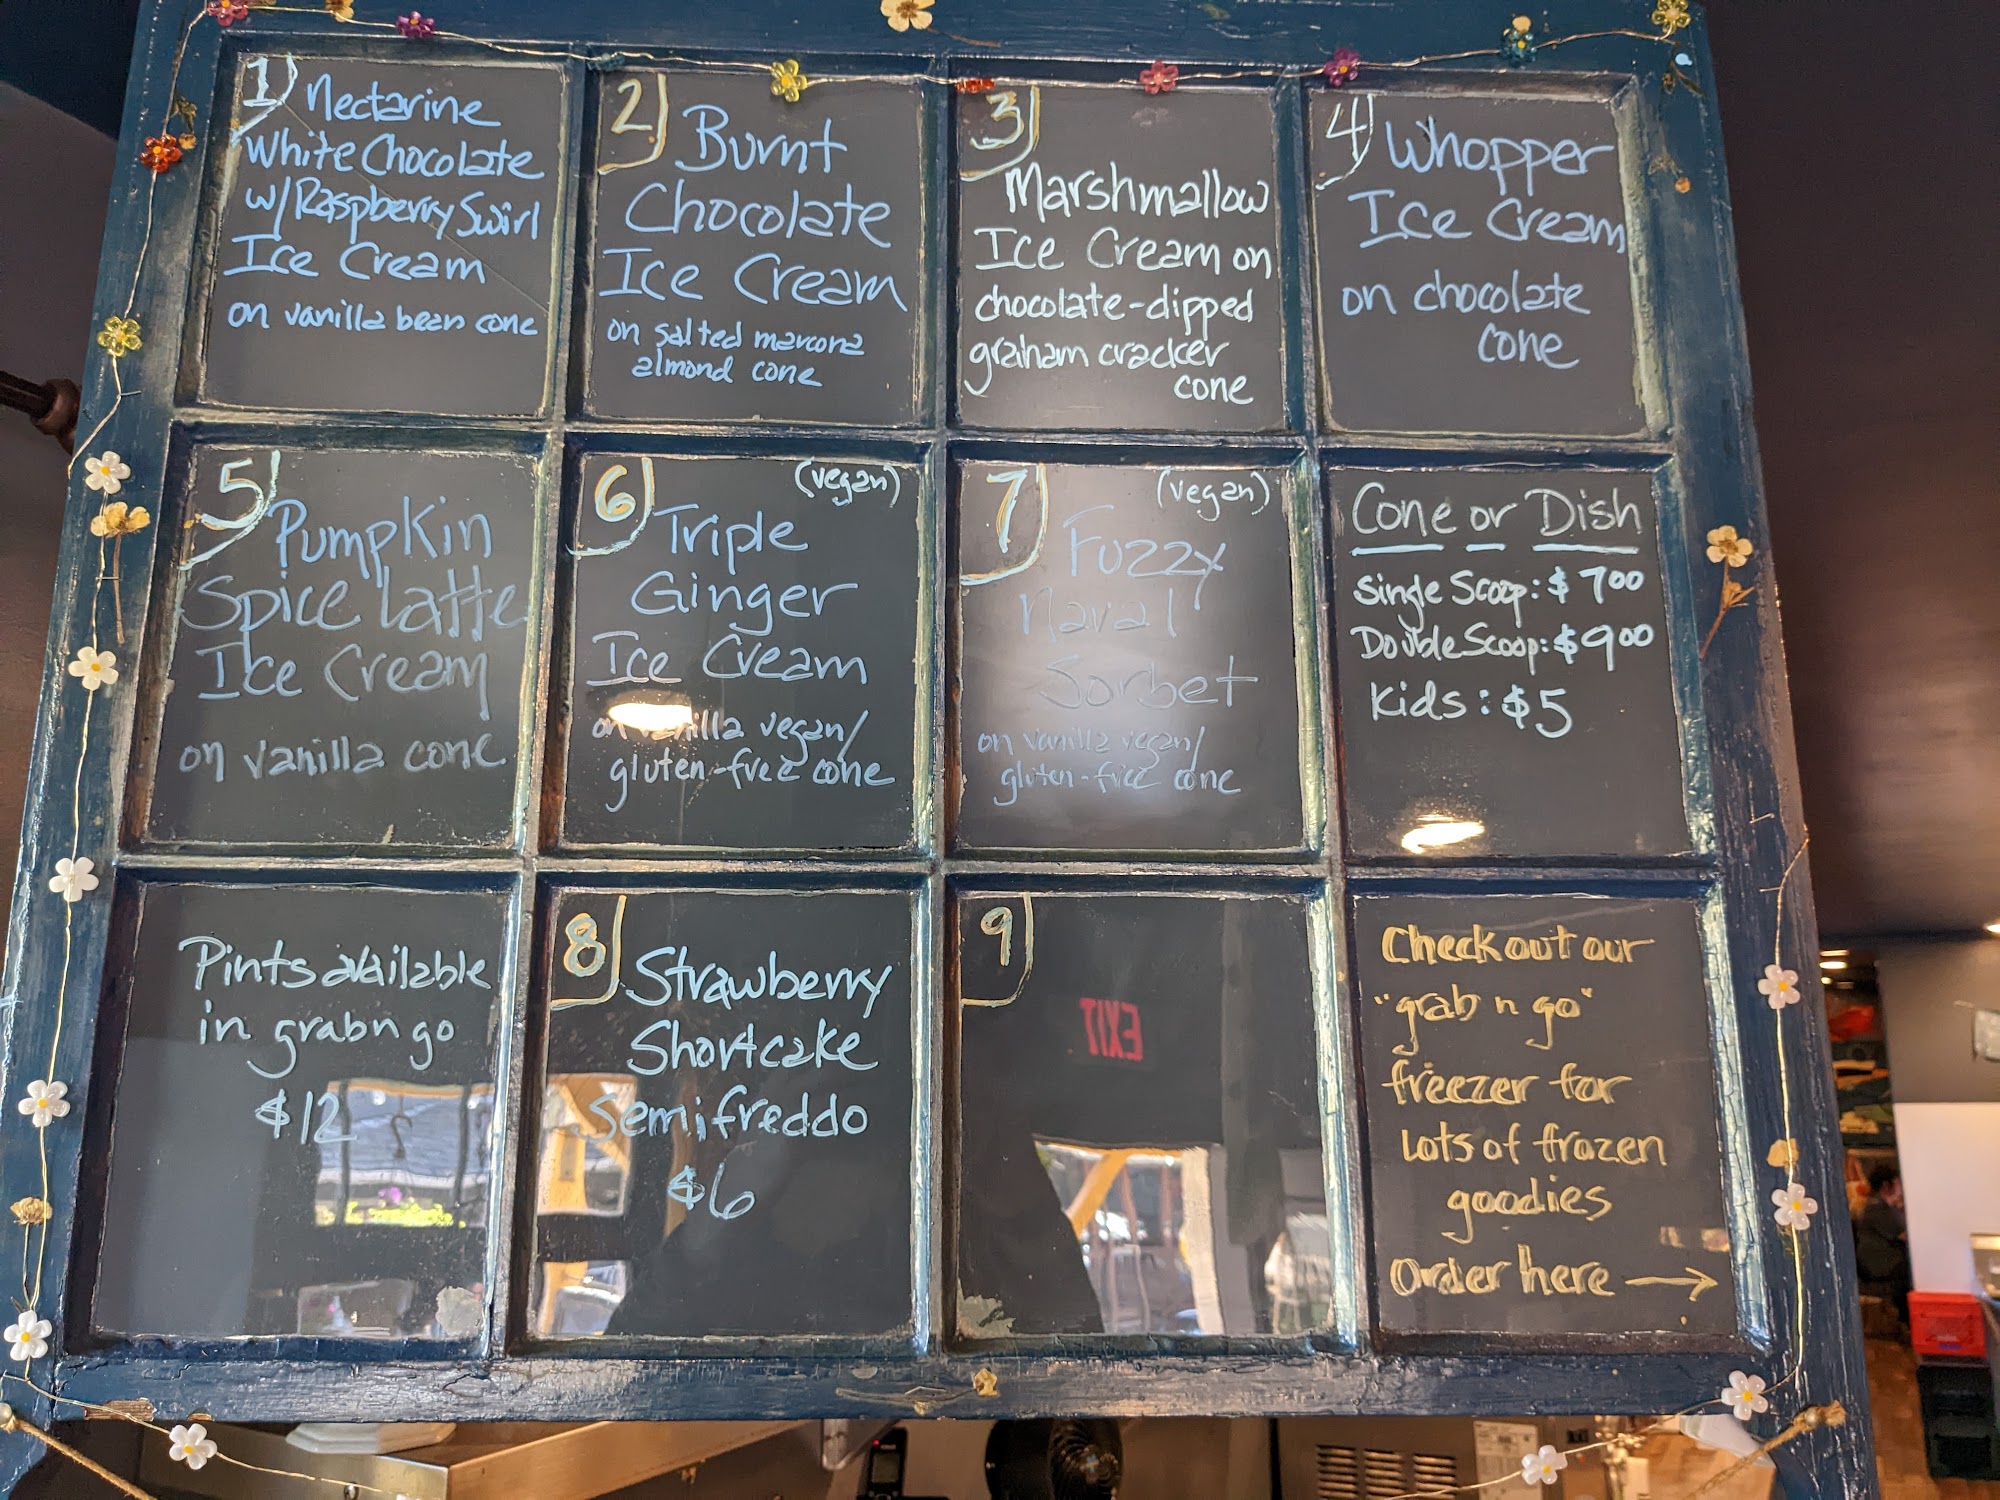 1
Nectarine
White Chocolate
w/Raspberry Swirl
Ice Cream
on vanilla bean cone
2
Burnt
Chocolate
Ice Cream
on salted marcona
almond cone
3
Marshmallow
Ice Cream on
chocolate-dipped
graham cracker
cone
4
Whopper
Ice Cream
on chocolate
cone
5
Pumpkin
Spice Latte
Ice Cream
on vanilla cone
6
(vegan)
Triple
Ginger
Ice Cream
on vanilla vegan/
gluten-free cone
7
(vegan)
Fuzzy
Naval
Sorbet
on vanilla vegan/
gluten-free cone
Cone or Dish
Single Scoop: $7.00
Double Scoop: $9.00
Kids: $5
Pints available
in grab n go
$12
8
Strawberry
Shortcake
Semifreddo
$6
9
EXIT
Check out our
"grab n go"
freezer for
Lots of frozen
goodies
Order here →